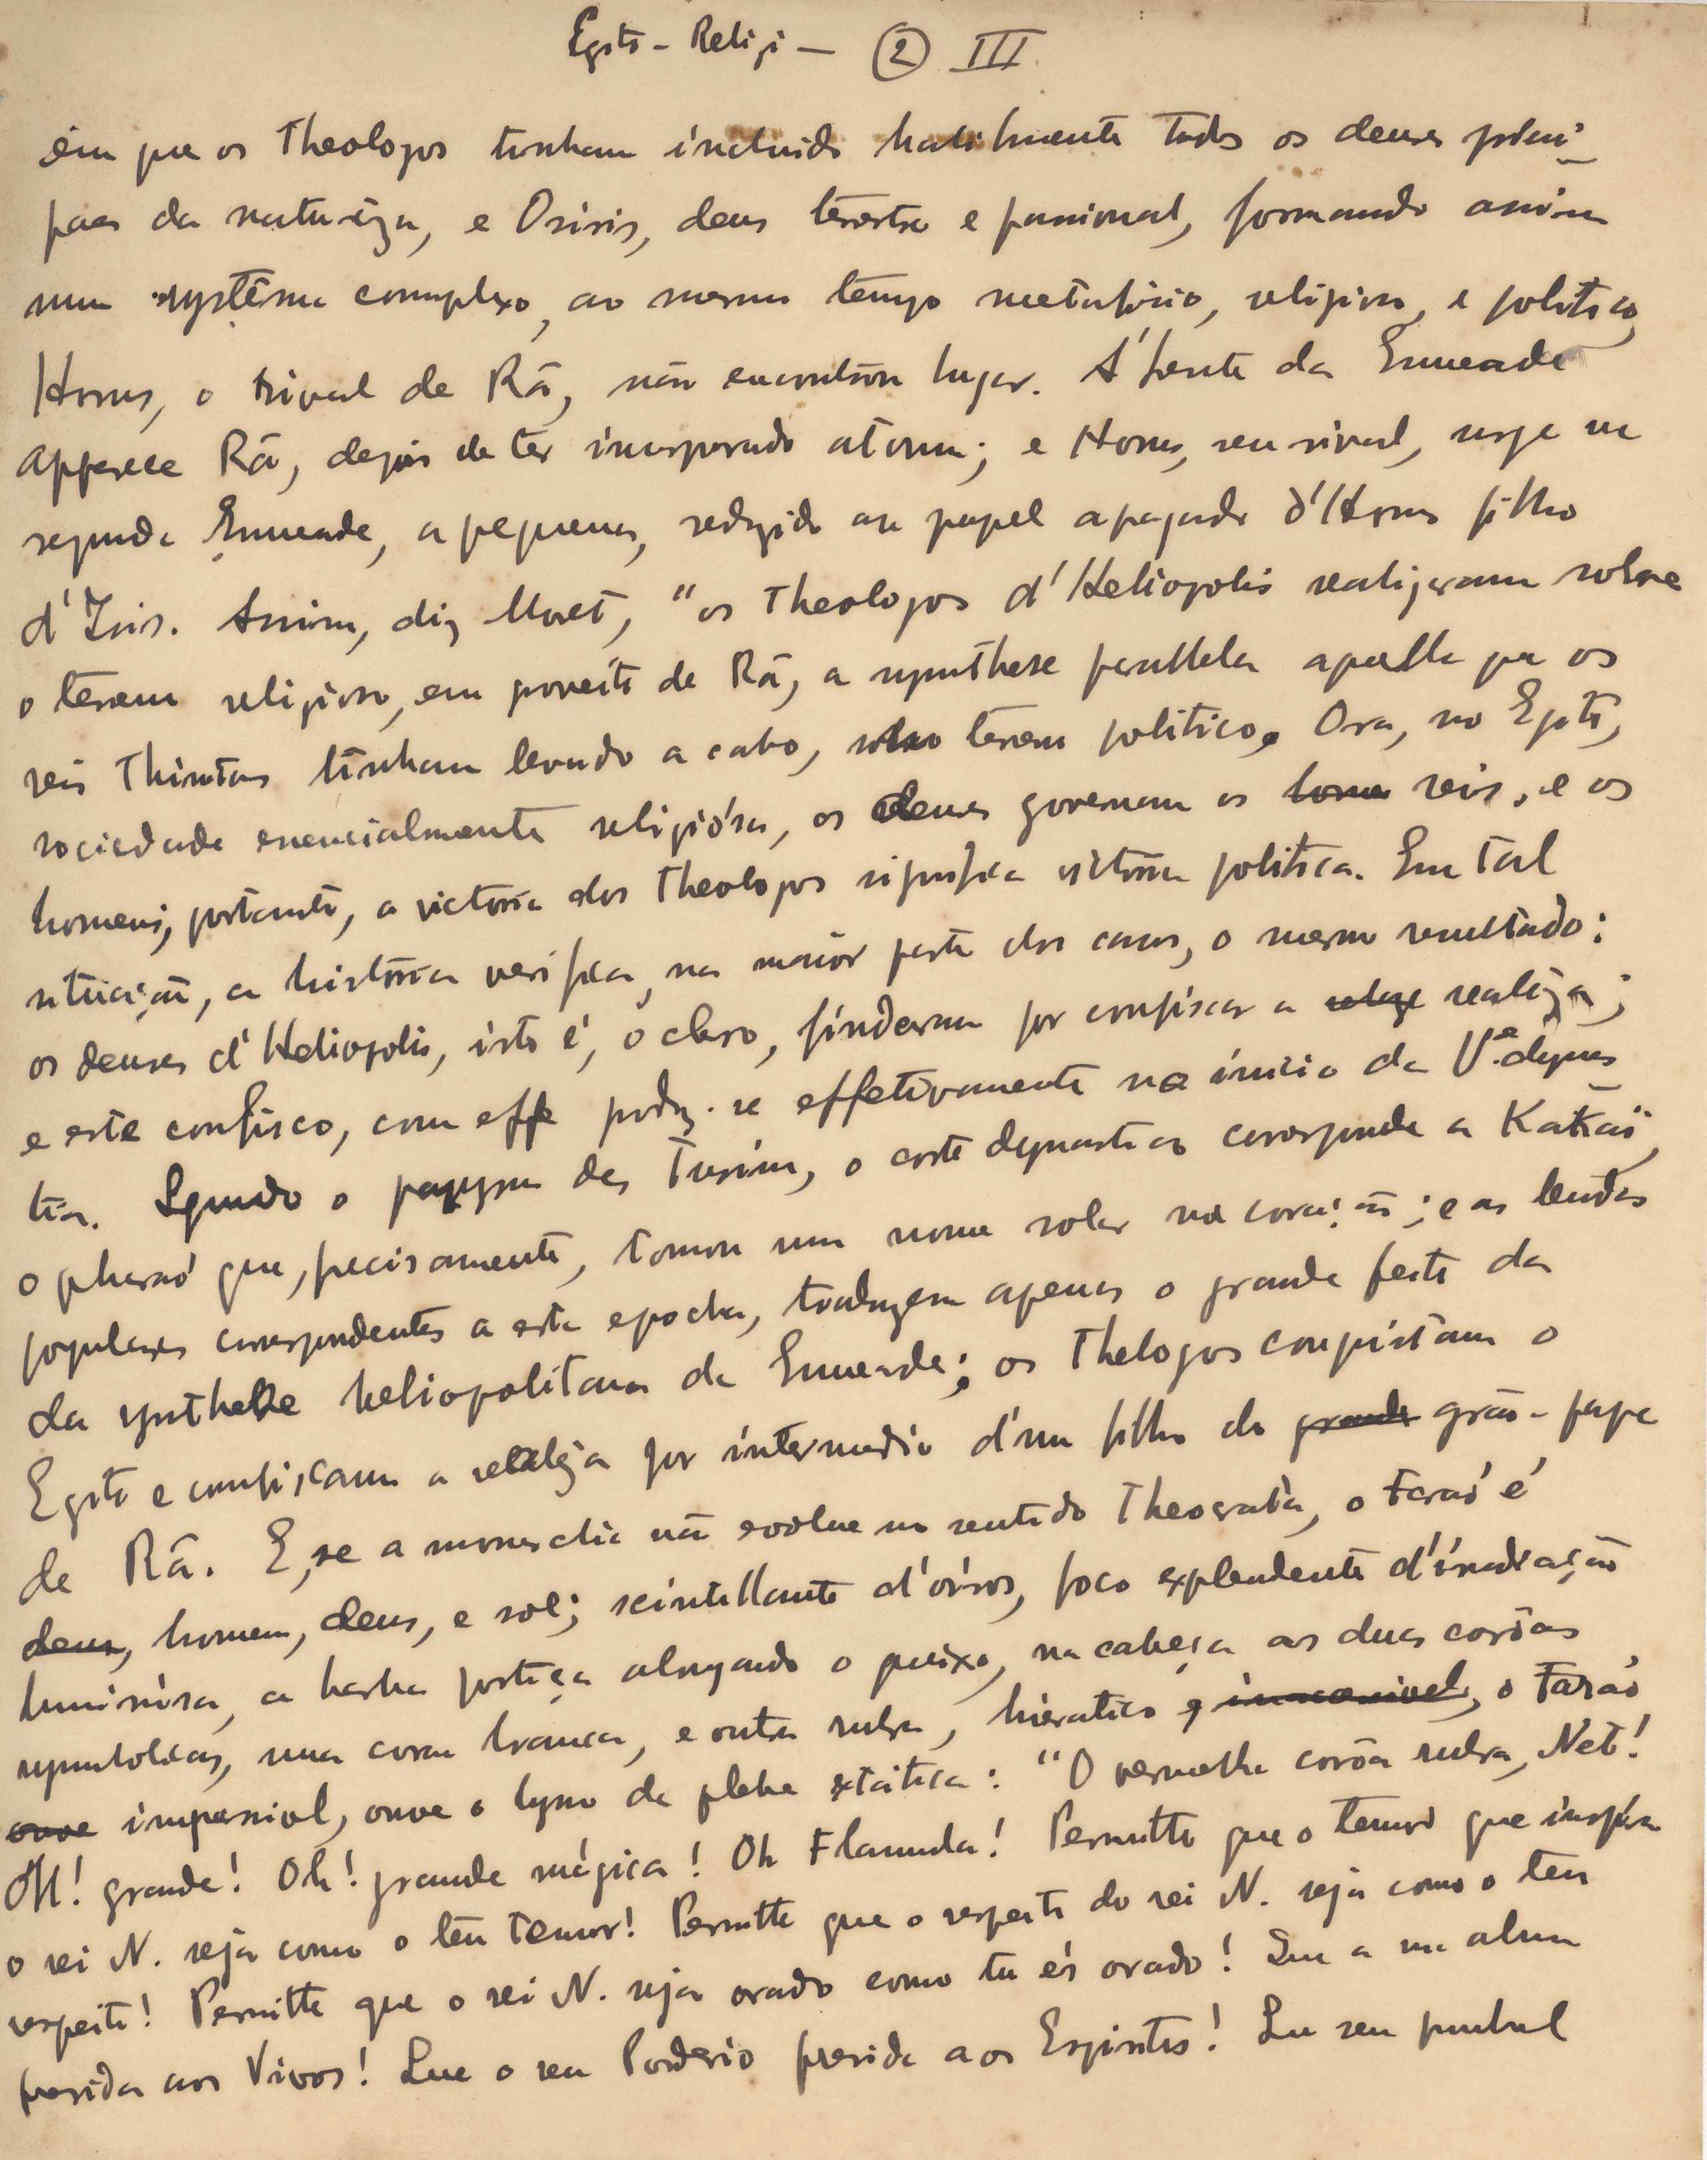 Egito - Religi — ② III
em que os Theologos tinham incluido habilmente todos os deuses princi-
paes da natureza, e Osiris, deus terestre e passional, formando assim
um systêma complexo, ao mesmo tempo metafisico, religioso, e politico,
Horus, o rival de Rã, não encontrou lugar. A' frente da Enneade
apparece Rã, depois de ter incorporado atoum; e Horus, seu rival, surge na
segunda Enneade, a pequena, reduzido ao papel apagado d'Horus filho
d'Isis. Assim, diz Moret, "os Theologos d'Heliopolis realizaram sobre
o tereno religioso, em proveito de Rã, a synthese parallela aquella que os
reis Thinitas tinham levado a cabo, sobre o tereno politico. Ora, no Egito,
sociedade essencialmente religiósa, os deuses governam os home reis, e os
homens, portanto, a victoria dos Theologos significa victoria politica. Em tal
situação, a história verifica, na maiór parte dos casos, o mesmo resultado:
os deuses d'Heliopolis, isto é, o clero, findaram por confiscar a realeza;
e este confisco, com effe produz-se effetivamente no inicio da V.ª dynas-
tia. Segundo o papyru de Turim, o corte dynastico coresponde a Kakaï,
o pharaó que, precisamente, tomou um nome solar na coroação; e as lendas
populares corespondentes a esta epocha, traduzem apenas o grande feito da
da synthese heliopolitana da Enneade; os Thelogos conquistam o
Egito e confiscam a realeza por intermedio d'um filho do grande grão-pape
de Rã. E, se a monarchia não evolue no sentido Theocrata, o Faraó é
deus, homem, deus, e sol; scintillante d'oiros, foco explendente d'iradiação
luminósa, a barba postiça alongando o queixo, na cabeça as duas corôas
symbolicas, uma coroa branca, e outra rubra, hieratico e, o Faraó
ouve impassivel, ouve o hyno da plebe extatica: "O vermelha corôa rubra, Net!
Oh! grande! Oh! grande mágica! Oh Flamula! Permitte que o temor que inspira
o rei N. seja como o teu temor! Permitte que o respeito do rei N. seja como o teu
respeito! Permitte que o rei N. seja orado como tu és orado! Que a sua alma
presida aos Vivos! Que o seu Poderio presida aos Espiritos! Que seu punhal